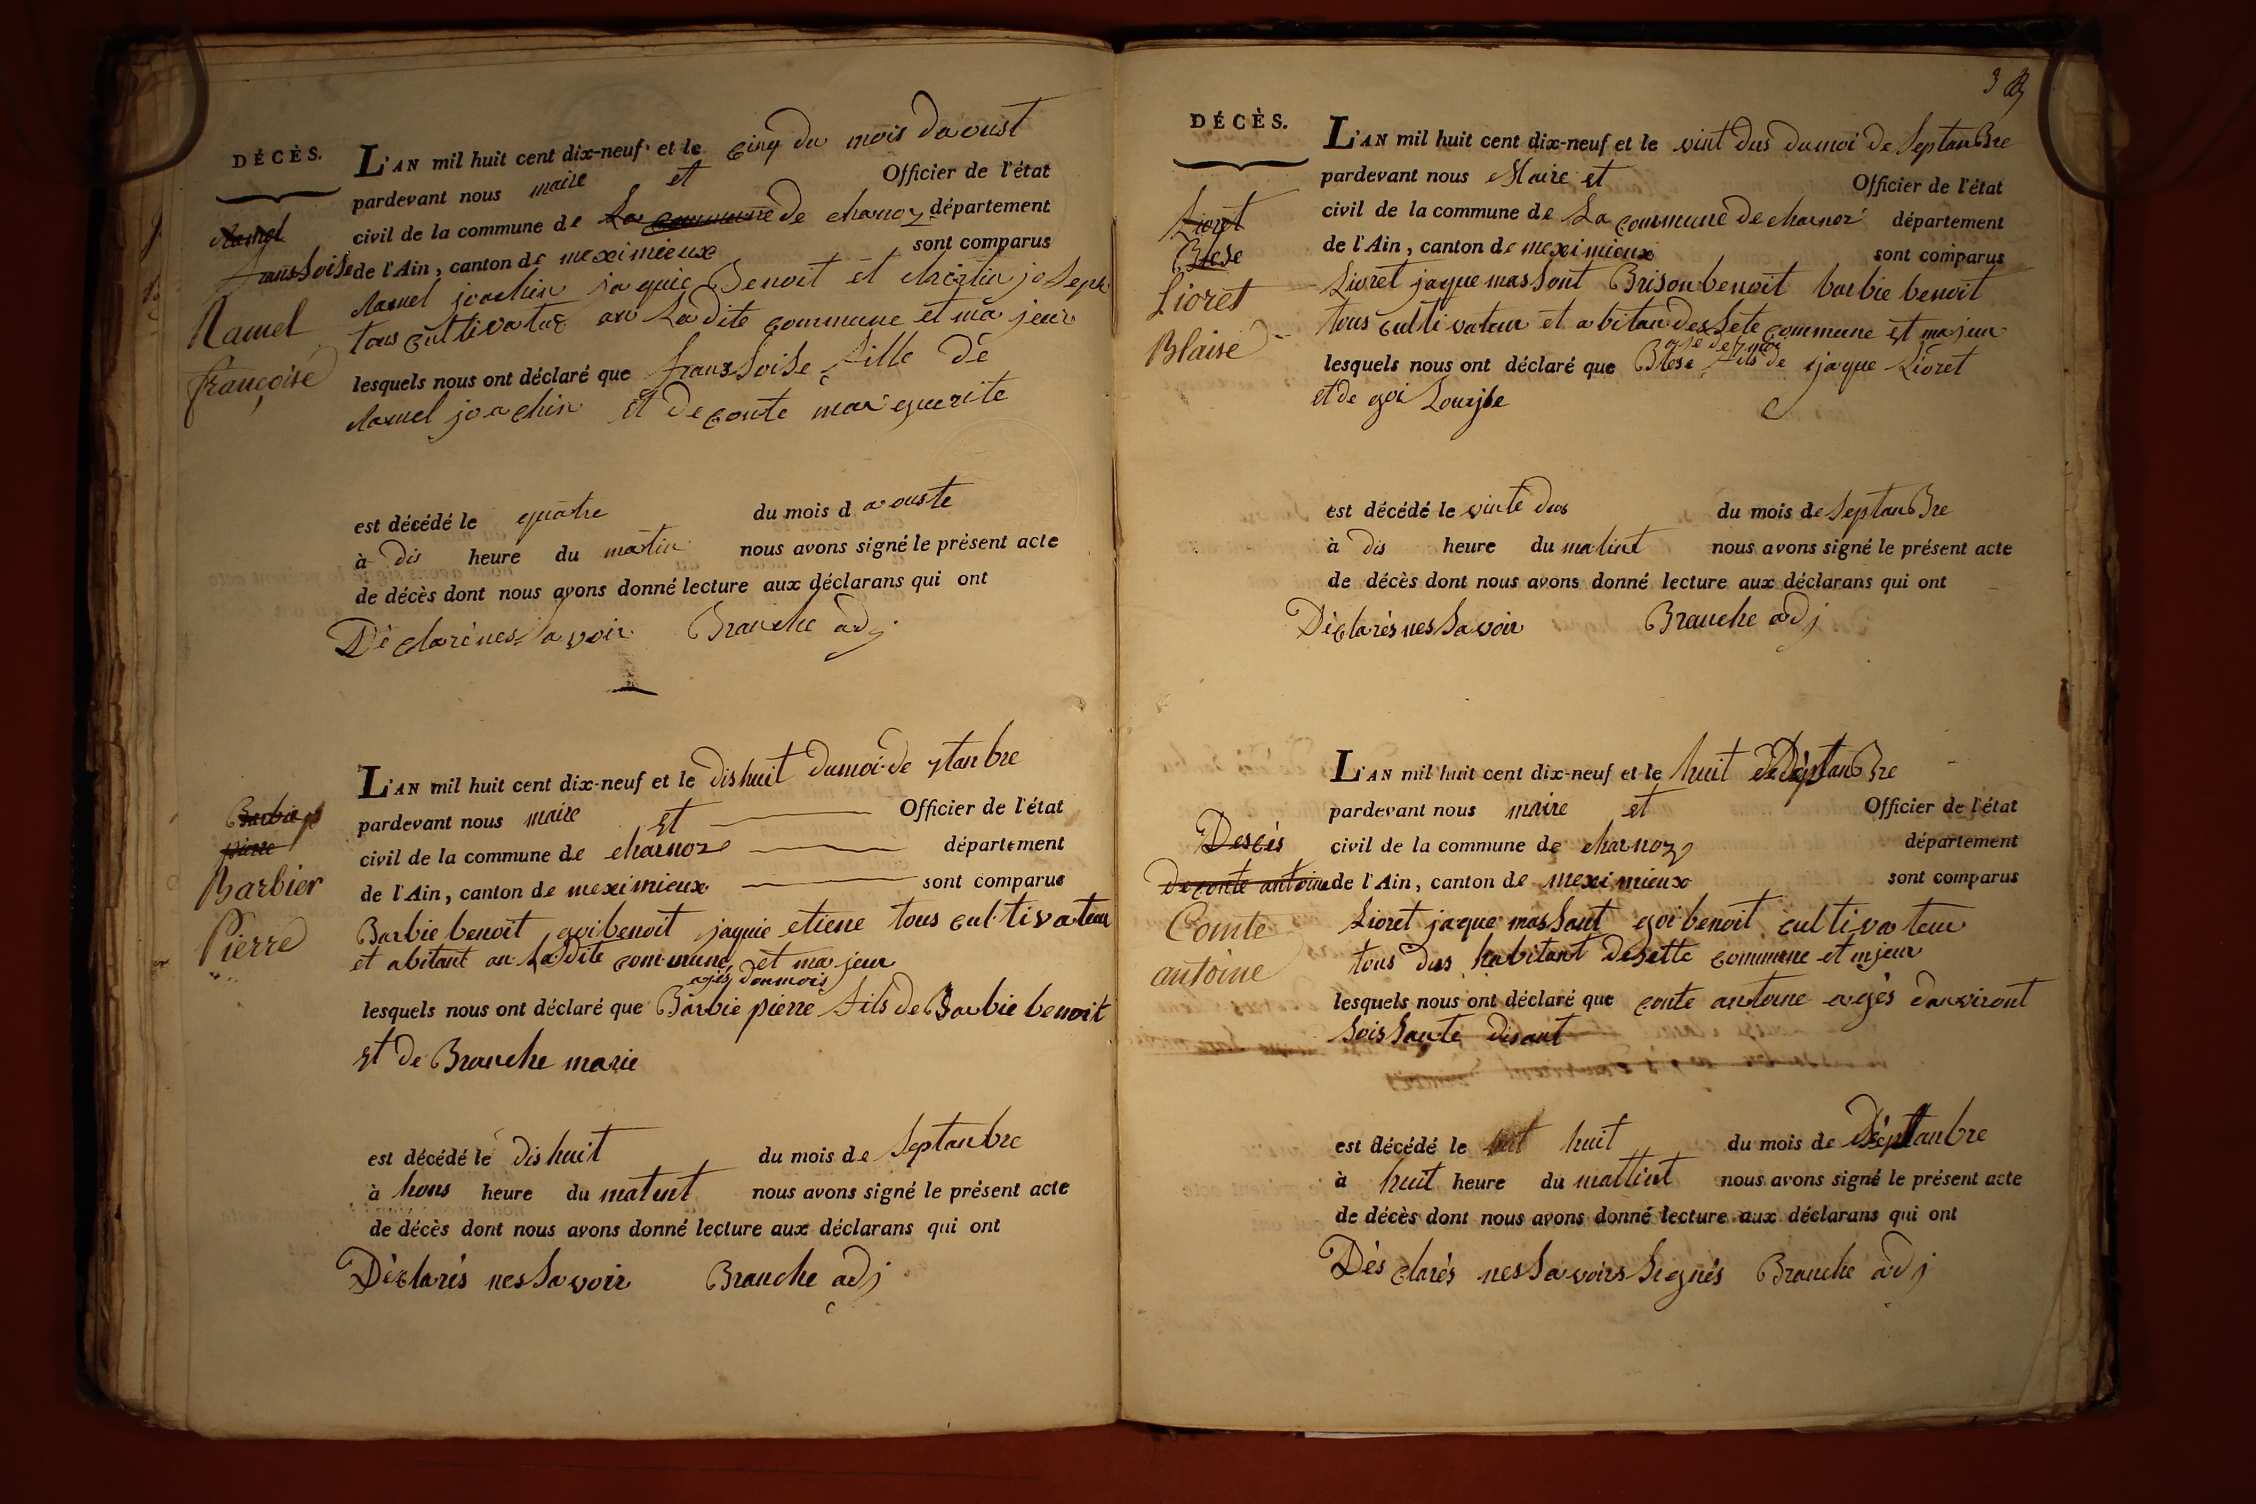 DÉCÈS.
L'AN mil huit cent dix-neuf et le cinq du mois daoust
pardevant nous maire et Officier de l'état
civil de la commune de La commune de charnoz département
de l'Ain, canton de meximieux sont comparus
Ramel
franssoise
Ramel
françoise
Ramel joachin jaquie Benoit et chretin joseph
tous cultivateur an Ladite commune et ma jeur
lesquels nous ont déclaré que franssoise fille de
Ramel joachin et de conte marguerite
est décédé le quatre du mois d avouste
à dis heure du matin nous avons signé le présent acte
de décès dont nous avons donné lecture aux déclarans qui ont
Déclaré nes savoir Branche adj
L'AN mil huit cent dix-neuf et le dishuit dumoi de 7tanbre
pardevant nous maire et Officier de l'état
civil de la commune de charnoz département
de l'Ain, canton de meximieux sont comparus
Barbie
pierre
Barbier
Pierre
Barbie benoit goi benoit jaquie etiene tous cultivateur
et abitant an Ladite commune et ma jeur
agés donmois
lesquels nous ont déclaré que Barbie pierre fils de Barbie benoit
et de Branche marie
est décédé le dishuit du mois de septanbre
à hons heure du matint nous avons signé le présent acte
de décès dont nous avons donné lecture aux déclarans qui ont
Déclarés nes savoir Branche adj
DÉCÈS.
L'AN mil huit cent dix-neuf et le vint dus dumoi de septanbre
pardevant nous Maire et Officier de l'état
civil de la commune de La commune de charnoz département
de l'Ain, canton de meximieux sont comparus
Lioret
Blese
Lioret
Blaise
Lioret jaque massont Brison benoit barbie benoit
tous cultivateur et abitan dessete commune et majeur
lesquels nous ont déclaré que Blese fils de jaque Lioret
et de goi Louise
est décédé le vinte dus du mois de septanbre
à dis heure du matint nous avons signé le présent acte
de décès dont nous avons donné lecture aux déclarans qui ont
Déclarés nes savoir Branche adj
L'AN mil huit cent dix-neuf et le huit de Déptanbre
pardevant nous maire et Officier de l'état
civil de la commune de charnoz département
de l'Ain, canton de meximieux sont comparus
Descès
de conte antoine
Comte
antoine
Lioret jaque massant goi benoit cultivateur
tous dus habitant desette commune et mjeur
lesquels nous ont déclaré que conte antoine agés danviront
soissante disant
est décédé le huit du mois de Déptanbre
à huit heure du mattint nous avons signé le présent acte
de décès dont nous avons donné lecture aux déclarans qui ont
Dés clarés nes savoirs signés Branche adj